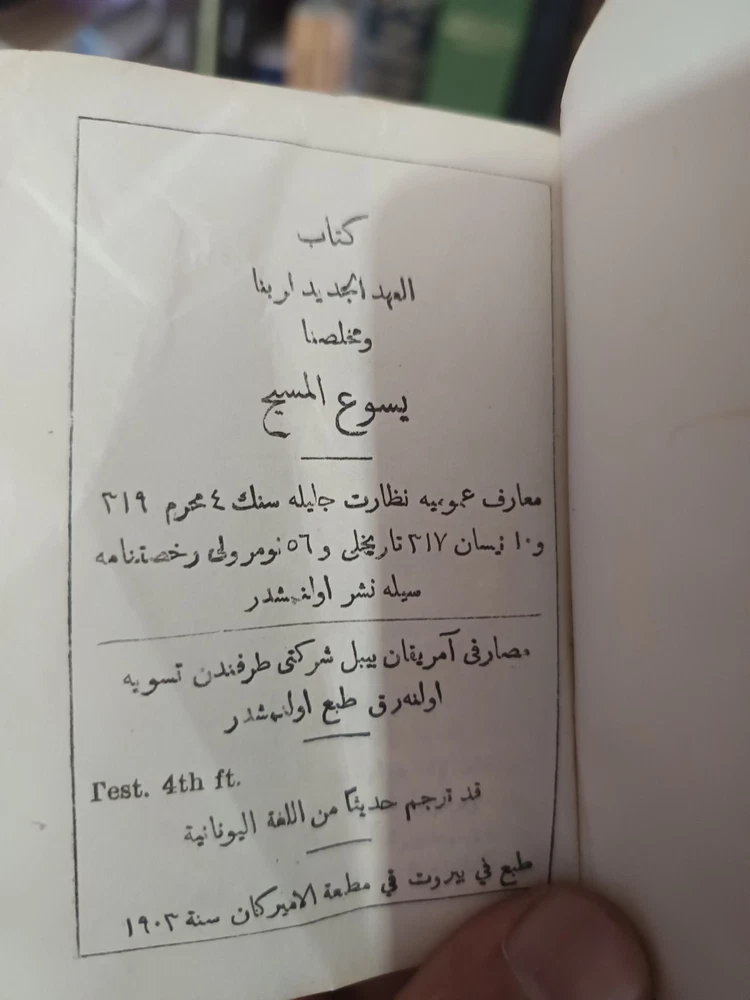 كتاب
العهد الجديد لربنا
ومخلصنا
يسوع المسيح
معارف عموميه نظارت جليله سنك ٤ محرم ٣١٩
و١٠ نيسان ٣١٧ تاريخلى و ٥٦ نومرولى رخصتنامه
سيله نشر اولنمشدر
مصارفى آمريقان بيبل شركتى طرفندن تسويه
اولنه‌رق طبع اولنمشدر
Test. 4th ft.
قد ترجم حديثاً من اللغة اليونانية
طبع في بيروت في مطبعة الاميركان سنة ١٩٠٣